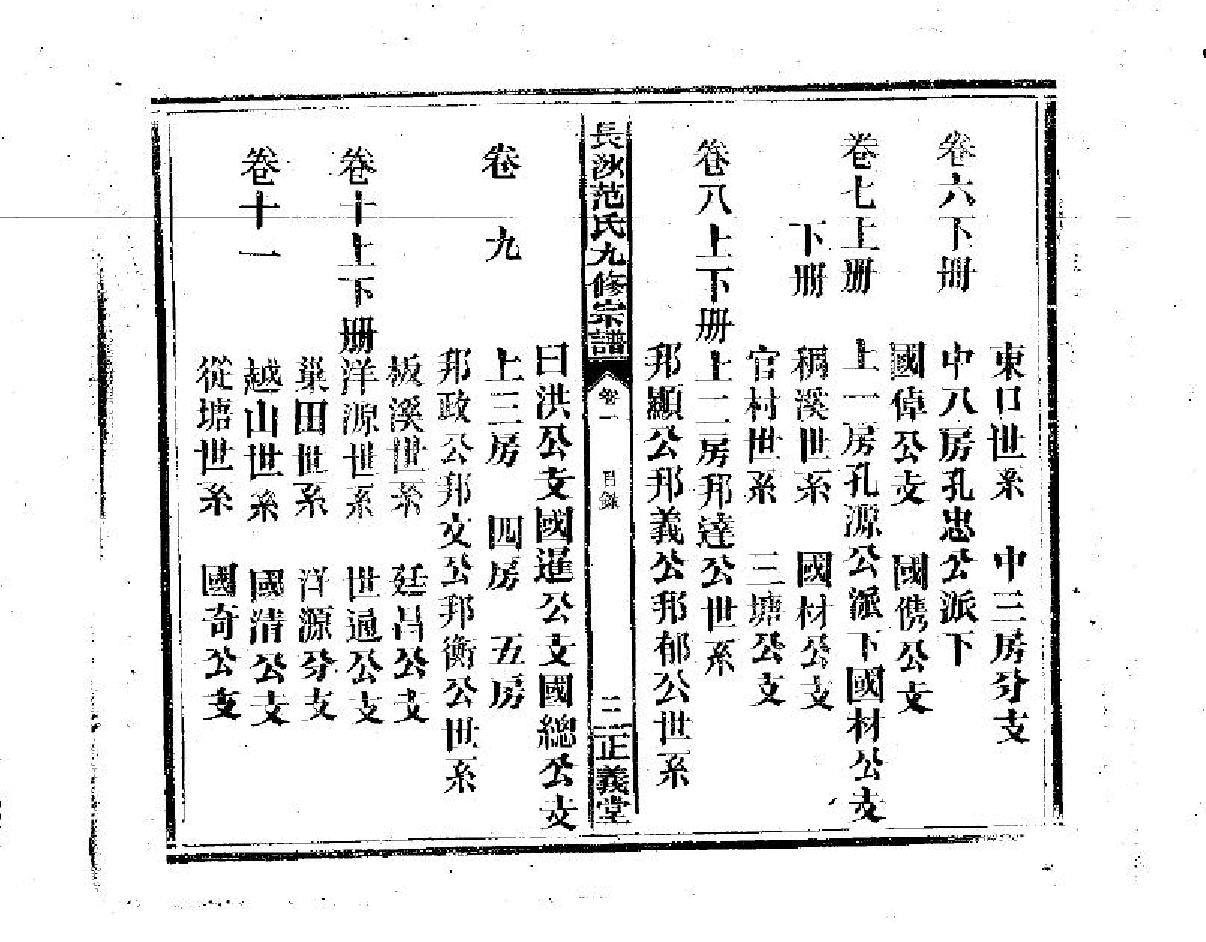 東口世系　中三房分支
卷六下册　中八房孔忠公派下
國偉公支　國儁公支
卷七上册　上一房孔源公派下國材公支
下册　稠溪世系　國材公支
官村世系　三塘公支
卷八上下册　上二房邦達公世系
邦顯公邦義公邦郁公世系
長沙范氏九修宗譜　卷一　目錄　三　正義堂
曰洪公支國暹公支國總公支
卷九　上三房　四房　五房
邦政公邦文公邦衡公世系
板溪世系　廷昌公支
卷十上下册　洋源世系　世通公支
巢田世系　洋源分支
卷十一　越山世系　國清公支
從塘世系　國奇公支